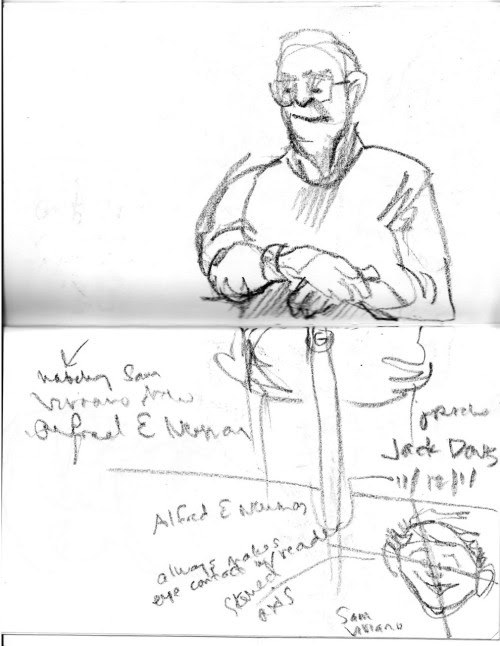 watching Sam
Viviano draw
Alfred E Neuman
Jack Davis
Alfred E Neuman
always makes
eye contact w/ reader
skewed
axis
Sam
Viviano